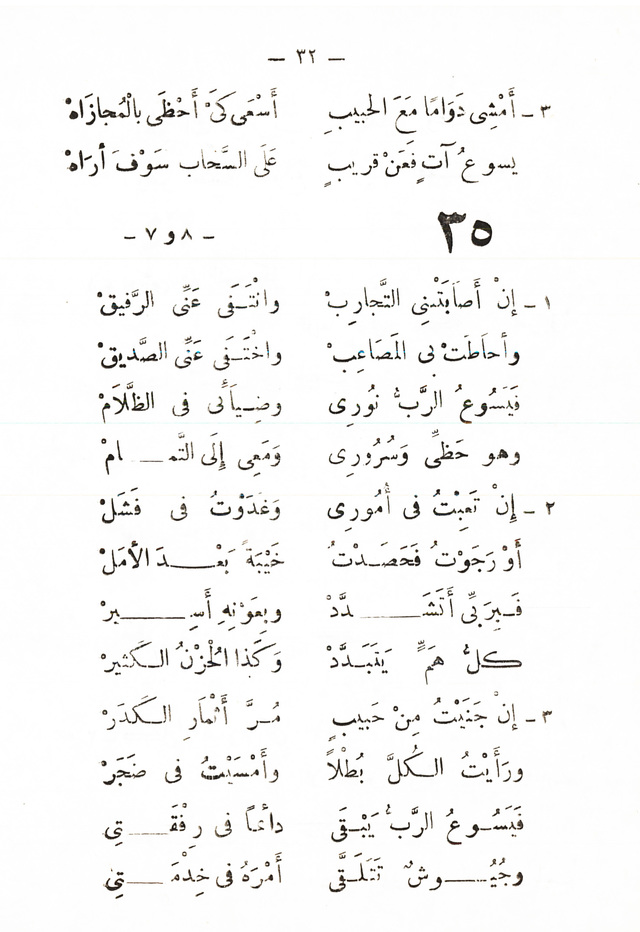 — ٣٢ —
٣ – أَمْشِى دَوَامًا مَعَ الحبيبِ أَسْعَى كَىْ أَحْظَى بالْمُجازَاهْ
يسوعُ آتٍ فَعَنْ قريبٍ عَلَى السَّحَاب سَوْفَ أرَاهْ
٣٥ – ٨ و ٧ –
١ – إنْ أَصَابَتْنِى التَّجارِبْ وانْتَـفَى عَنِّى الرَّفيقْ
وأحاطَتْ بى المَصَاعِبْ واخْتَـفَى عَنِّى الصَّديقْ
فَيَسُوعُ الرَّبُّ نُورِى وضِـيَائى فى الظَّلَامْ
وهو حَظِّى وَسُرُورِى وَمَعِى إِلَى التَّمـامْ
٢ – إِنْ تَعِبْتُ فى أُمُورِى وَغَدَوْتُ فى فَشَلْ
أَوْ رَجَوْتُ فَحَصَـدْتُ خَيْبَةً بَعْـدَ الأمَلْ
فَـبِرَبِّى أَتَشَـدَّدْ وبِعَوْنِهِ أَسِـيرْ
كلُّ هَمٍّ يَتَبَـدَّدْ وَكَذا الْحُزْنُ الـكَثيرْ
٣ – إنْ جَنَيْتُ مِنْ حَبيبٍ مُـرَّ أَثْمَارِ الـكَدَرْ
ورَأَيْتُ الـكُلَّ بُطْلاً وأَمْسَيْتُ فى ضَجَرْ
فَيَسُـوعُ الرَّبُّ يَبْـقَى دائماً فى رِفْقَـتِى
وجُيُـوشٌ تَتَلَـقَّى أَمْرَهُ فى خِدْمَـتِى